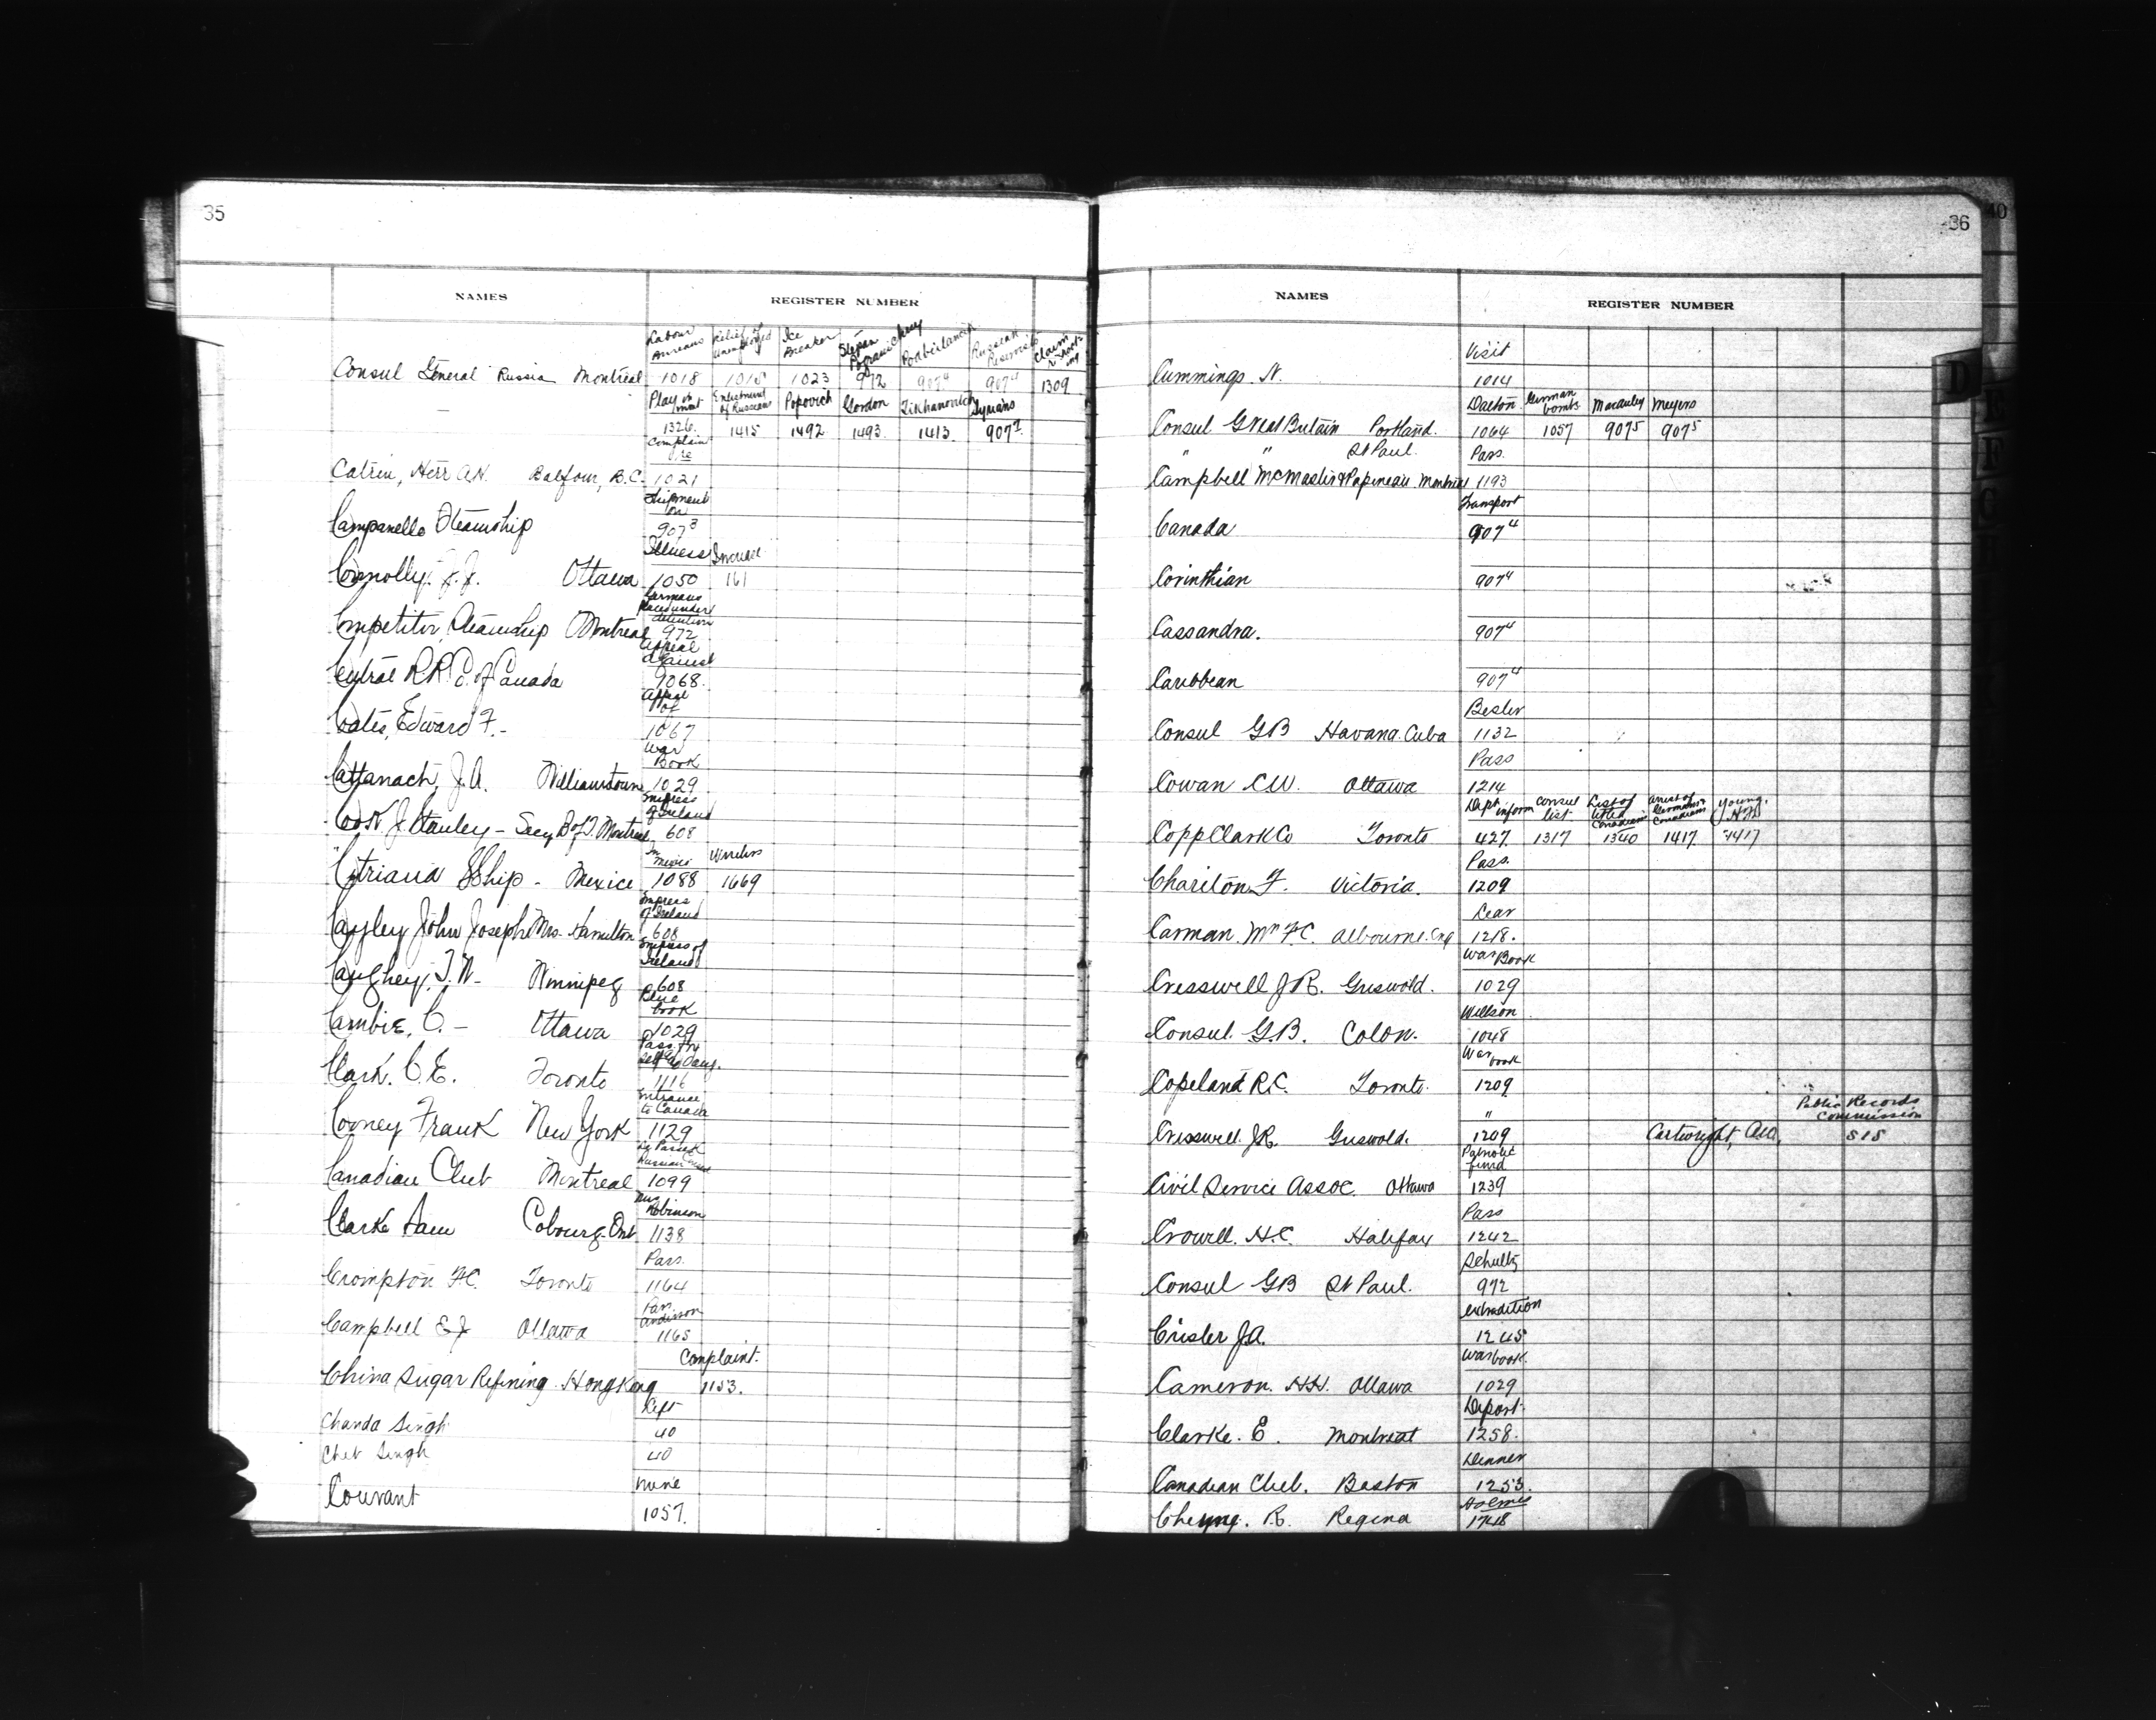 35
NAMES REGISTER NUMBER
Labour Bureaus Relief of Unemployed Ice Breaker Stepan Russian Reservists Claim
Consul General Russia Montreal 1018 1015 1023 972 907⁴ 907⁴ 1309
Enlistment of Russians Popovich Gordon Tikhanovich
1326. 1415 1492 1493 1413 907⁷
Complaint
Catrin, Herr A.H. Balfour, B.C. 1021
Shipment on
Campanello Steamship 907³
Illness Increase
Connolly, J.J. Ottawa 1050 161
Germans placed under detention
Competitor, Steamship Montreal 972
Appeal against
Central R.R. Co. of Canada 9068.
Appeal of
Coates, Edward F.- 1067
War Book
Cattanach, J.A. Williamstown 1029
Empress of Ireland
Cook J. Stanley - Secy B of T. Montreal 608
In Mexico
Citriana SShip - Mexico 1088 1669
Empress of Ireland
Cayley John Joseph Mrs. Hamilton 608
Empress of Ireland
Caughey, T.W- Winnipeg 608
Blue book
Cambie, C. - Ottawa 1029
Pass for self & Daug.
Clark. C.E. Toronto 1116
Entrance to Canada
Cooney Frank New York 1129
Canadian Club Montreal 1099
Robinson
Clarke Sam Cobourg. Ont 1138
Pass.
Crompton F.C. Toronto 1164
Pass. Anderson
Campbell E J Ottawa 1165
Complaint.
China Sugar Refining. Hong Kong 1153.
Left
Chanda Singh 40
Chet Singh 40
Mine
Courant 1057.
36
NAMES REGISTER NUMBER
Visit
Cummings. N. 1014
Dalton German bombs Macauley Meyers
Consul Great Britain Portland. 1064 1057 907⁵ 907⁵
" " St Paul. Pass.
Campbell McMaster & Papineau Montreal 1193
Transport
Canada 907⁴
Corinthian 907⁴
Cassandra. 907⁴
Caribbean 907⁴
Besler
Consul GB Havana. Cuba 1132
Pass
Cowan C.W. Ottawa 1214
Dept inform Consul list List of titled Canadians arrest of Germans & Canadians Young.
Copp Clark Co Toronto 427. 1317 1340 1417. 1417
Pass.
Charlton F. Victoria. 1209
Lear
Carman. Mrs F.C. Albourne. Eng 1218.
War Book
Cresswell J R. Griswold. 1029
Willson
Consul. G.B. Colon. 1048
War book
Copeland R.C. Toronto. 1209
" Public Records Commission
Cresswell. J.R. Griswold. 1209 Cartwright, 515
Patriotic fund
Civil Service Assoc. Ottawa 1239
Pass
Crowell. H.C. Halifax 1242
Schultz
Consul GB St Paul. 972
extradition
Crisler J.A. 1245
War book.
Cameron. H.H. Ottawa 1029
Deport.
Clarke. E. Montreal 1258.
Dinner
Canadian Club. Boston 1253.
Holmes
R. Regina 1748
40
D
E
F
G